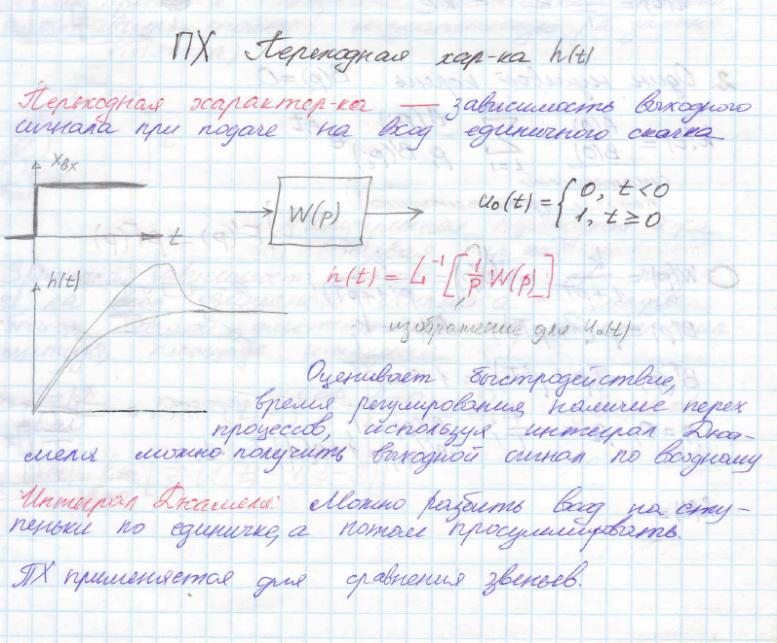 ПХ Переходная хар-ка h(t)
Переходная характер-ка — зависимость выходного
сигнала при подаче на вход единичного скачка
Xвх
t
W(p)
u₀(t) = { 0, t < 0
1, t ≥ 0
h(t)
h(t) = L⁻¹ [ 1/p W(p) ]
изображение для u₀(t)
Оценивает быстродействие,
время регулирования, наличие перех
процессов, используя интеграл Дюа-
меля можно получить выходной сигнал по входному
Интеграл Дюамеля: Можно разбить вход на сту-
пеньки по единичке, а потом просуммировать.
ПХ применяется для сравнения звеньев.